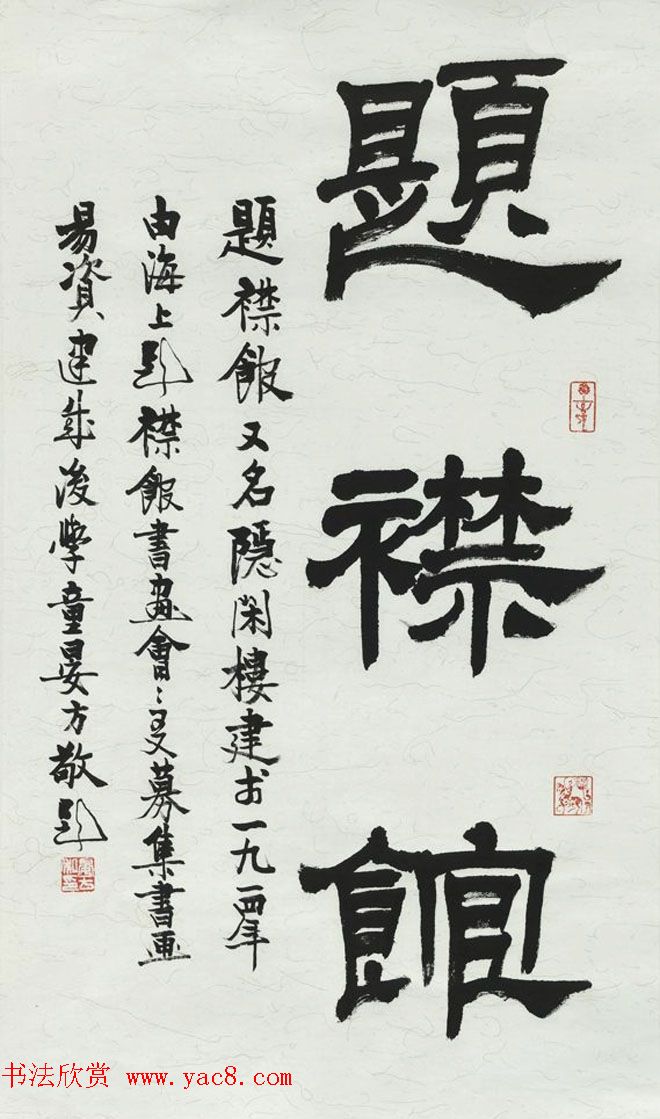 題襟館
題襟館又名隱閑樓建於一九一四年
由海上題襟館書畫會會友募集書画
易資建成後學童晏方敬題
书法欣赏 www.yac8.com